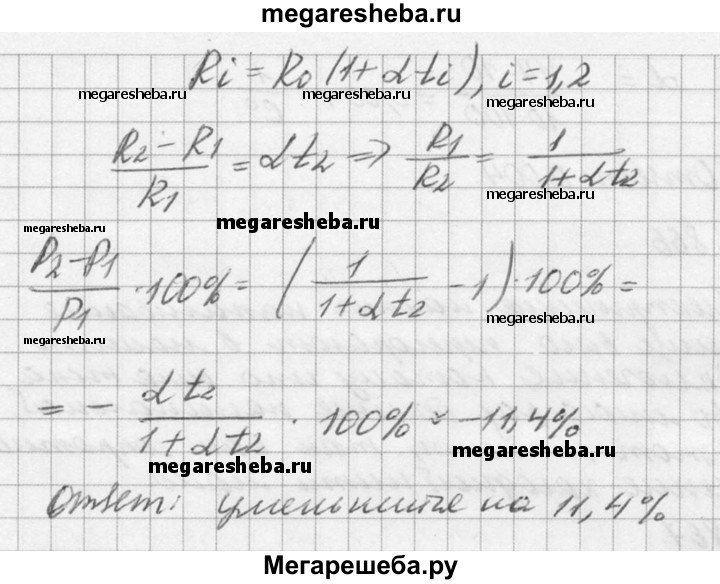 megaresheba.ru
Ri = R0 (1+αti), i=1,2
megaresheba.ru megaresheba.ru
(R2 − R1)/R1 = αt2 ⇒ R1/R2 = 1/(1+αt2)
megaresheba.ru
megaresheba.ru megaresheba.ru
(P2−P1)/P1 · 100% = (1/(1+αt2) − 1) · 100% =
megaresheba.ru
megaresheba.ru
= − αt2/(1+αt2) · 100% ≈ −11,4%
megaresheba.ru
megaresheba.ru
Ответ: уменьшится на 11,4%
Мегарешеба.ру